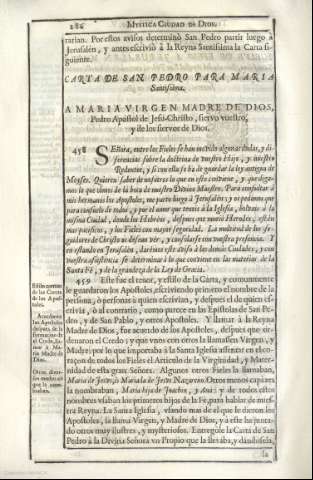 286 MYSTICA CIUDAD DE DIOS.
rarian. Por estos avisos determinò San Pedro partir luego à
Jerusalèn, y antes escriviò à la Reyna Santissima la Carta si-
guiente.
CARTA DE SAN PEDRO PARA MARIA
Santissima.
A MARIA VIRGEN MADRE DE DIOS,
Pedro Apostol de Jesu-Christo, siervo vuestro,
y de los siervos de Dios.
458 SEñora, entre los Fieles se han movido algunas dudas, y di-
ferencias sobre la doctrina de vuestro Hijo, y nuestro
Redentor, y si con ella se ha de guardar la ley antigua de
Moyses. Quieren saber de nosotros lo que en esto conviene, y que diga-
mos lo que oimos de la boca de nuestro Divino Maestro. Para consultar à
mis hermanos los Apostoles, me parto luego à Jerusalèn; y os pedimos que
para consuelo de todos, y por el amor que teneis à la Iglesia, bolvais à la
misma Ciudad, donde los Hebreos, despues que muriò Herodes, estàn
mas pacificos, y los Fieles con mayor seguridad. La multitud de los se-
guidores de Christo os desean ver, y consolarse con vuestra presencia. Y
en estando en Jerusalèn, darèmos este aviso à las demàs Ciudades, y con
vuestra assistencia se determinarà lo que conviene en las materias de la
Santa Fè, y de la grandeza de la Ley de Gracia.
459 Este fue el tenor, y estilo de la Carta, y comunmente
le guardaron los Apostoles, escriviendo primero el nombre de la
persona, ò personas à quien escrivian, y despues el de quien es-
crivia, ò al contrario, como parece en las Epistolas de San Pe-
dro, y de San Pablo, y otros Apostoles. Y llamar à la Reyna
Madre de Dios, fue acuerdo de los Apostoles, despues que or-
denaron el Credo; y que unos con otros la llamassen Virgen, y
Madre; por lo que importaba à la Santa Iglesia assentar en el co-
razon de todos los Fieles el Articulo de la Virginidad, y Mater-
nidad de esta gran Señora. Algunos otros Fieles la llamaban,
Maria de Jesus, ò Maria la de Jesus Nazareno. Otros menos capaces
la nombraban, Maria hija de Joachin, y Ana; y de todos estos
nombres usaban los primeros hijos de la Fè, para hablar de nues-
tra Reyna. La Santa Iglesia, usando mas de el que le dieron los
Apostoles, la llama Virgen, y Madre de Dios, y à este ha junta-
do otros muy ilustres, y mysteriosos. Entregòle la Carta de San
Pedro à la Divina Señora un Propio que la llevaba, y dandosela,
la
de las Cartas
de los Apos-
toles.
los Apostoles
despues de la
formacion de
el Credo, lla-
mar à Ma-
ria Madre de
Dios.